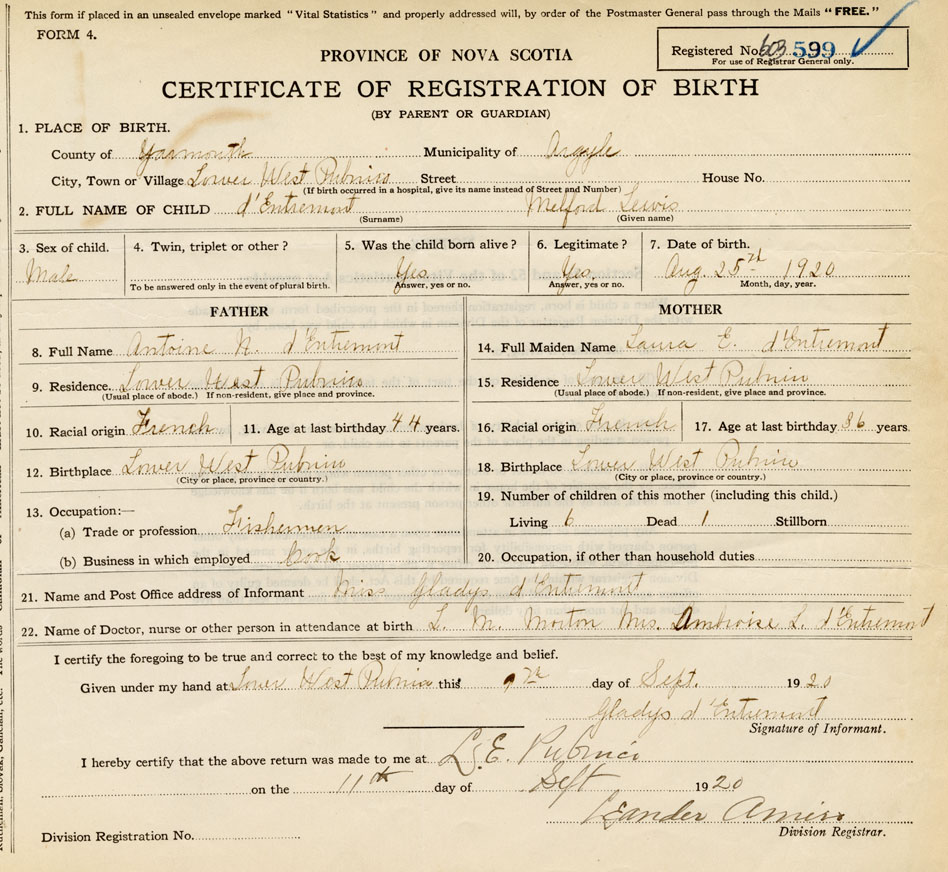 This form if placed in an unsealed envelope marked "Vital Statistics" and properly addressed will, by order of the Postmaster General pass through the Mails "FREE."
FORM 4.
Registered No. 603 599
For use of Registrar General only.
PROVINCE OF NOVA SCOTIA
CERTIFICATE OF REGISTRATION OF BIRTH
(BY PARENT OR GUARDIAN)
1. PLACE OF BIRTH.
County of Yarmouth Municipality of Argyle
City, Town or Village Lower West Pubnico Street House No.
(If birth occurred in a hospital, give its name instead of Street and Number)
2. FULL NAME OF CHILD d'Entremont Melford Lewis
(Surname) (Given name)
3. Sex of child. 4. Twin, triplet or other? 5. Was the child born alive? 6. Legitimate? 7. Date of birth.
Male Yes Yes. Aug. 25th 1920
To be answered only in the event of plural birth. Answer, yes or no. Answer, yes or no. Month, day, year.
FATHER MOTHER
8. Full Name Antoine N. d'Entremont 14. Full Maiden Name Laura E. d'Entremont
9. Residence. Lower West Pubnico 15. Residence Lower West Pubnico
(Usual place of abode.) If non-resident, give place and province. (Usual place of abode.) If non-resident, give place and province.
10. Racial origin French 11. Age at last birthday 44 years. 16. Racial origin French 17. Age at last birthday 36 years.
12. Birthplace Lower West Pubnico 18. Birthplace Lower West Pubnico
(City or place, province or country.) (City or place, province or country.)
13. Occupation:— 19. Number of children of this mother (including this child.)
(a) Trade or profession Fishermen Living 6 Dead 1 Stillborn
(b) Business in which employed Cook 20. Occupation, if other than household duties
21. Name and Post Office address of Informant Miss Gladys d'Entremont
22. Name of Doctor, nurse or other person in attendance at birth L. M. Morton Mrs. Ambroise L. d'Entremont
I certify the foregoing to be true and correct to the best of my knowledge and belief.
Given under my hand at Lower West Pubnico this 9th day of Sept. 1920
Gladys d'Entremont
Signature of Informant.
I hereby certify that the above return was made to me at L. E. Pubnico
on the 11th day of Sept 1920
Leander Amiro
Division Registration No. Division Registrar.